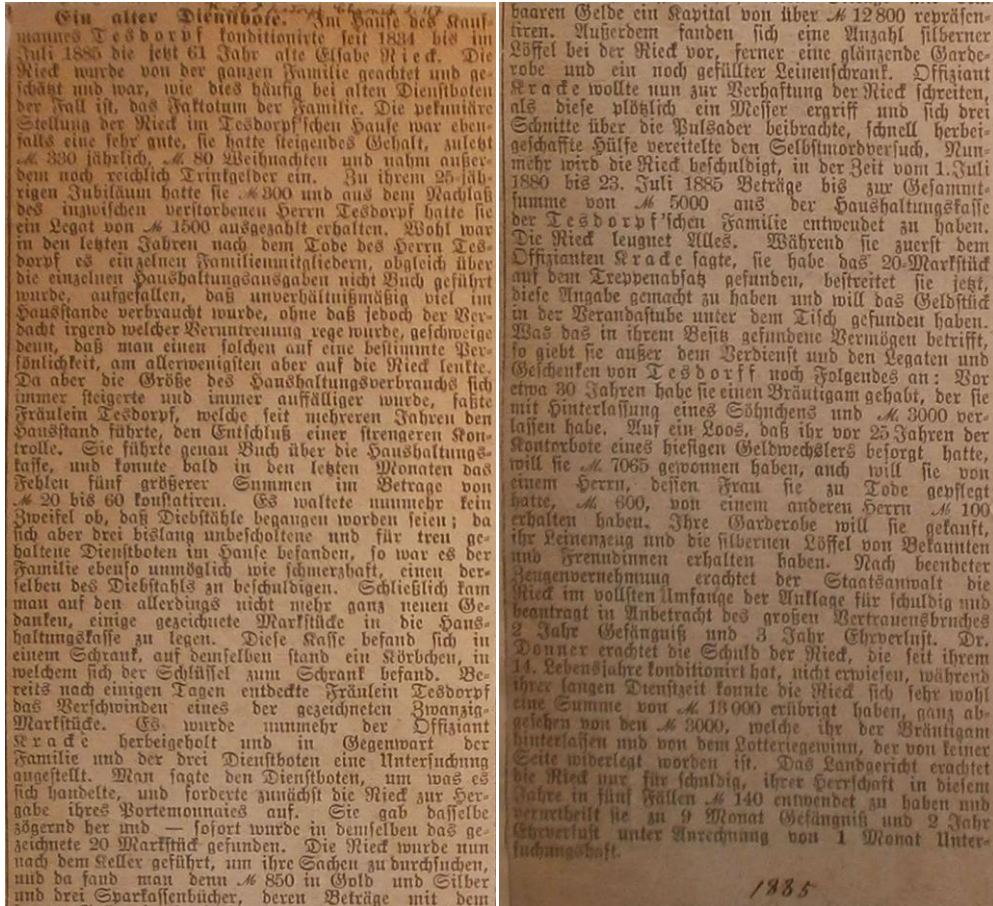 Ein alter Dienstbote. Im Hause des Kauf-
mannes Tesdorpf konditionirte seit 1834 bis im
Juli 1885 die jetzt 61 Jahr alte Elsabe Rieck. Die
Rieck wurde von der ganzen Familie geachtet und ge-
schätzt und war, wie dies häufig bei alten Dienstboten
der Fall ist, das Faktotum der Familie. Die pekuniäre
Stellung der Rieck im Tesdorpf'schen Hause war eben-
falls eine sehr gute, sie hatte steigendes Gehalt, zuletzt
M. 330 jährlich, M. 80 Weihnachten und nahm außer-
dem noch reichlich Trinkgelder ein. Zu ihrem 25-jäh-
rigen Jubiläum hatte sie M 300 und aus dem Nachlaß
des inzwischen verstorbenen Herrn Tesdorpf hatte sie
ein Legat von M 1500 ausgezahlt erhalten. Wohl war
in den letzten Jahren nach dem Tode des Herrn Tes-
dorpf es einzelnen Familienmitgliedern, obgleich über
die einzelnen Haushaltungsausgaben nicht Buch geführt
wurde, aufgefallen, daß unverhältnißmäßig viel im
Hausstande verbraucht wurde, ohne daß jedoch der Ver-
dacht irgend welcher Veruntreuung rege wurde, geschweige
denn, daß man einen solchen auf eine bestimmte Per-
sönlichkeit, am allerwenigsten aber auf die Rieck lenkte.
Da aber die Größe des Haushaltungsverbrauchs sich
immer steigerte und immer auffälliger wurde, faßte
Fräulein Tesdorpf, welche seit mehreren Jahren den
Hausstand führte, den Entschluß einer strengeren Kon-
trolle. Sie führte genau Buch über die Haushaltungs-
kasse, und konnte bald in den letzten Monaten das
Fehlen fünf größerer Summen im Betrage von
M 20 bis 60 konstatiren. Es waltete nunmehr kein
Zweifel ob, daß Diebstähle begangen worden seien; da
sich aber drei bislang unbescholtene und für treu ge-
haltene Dienstboten im Hause befanden, so war es der
Familie ebenso unmöglich wie schmerzhaft, einen der-
selben des Diebstahls zu beschuldigen. Schließlich kam
man auf den allerdings nicht mehr ganz neuen Ge-
danken, einige gezeichnete Markstücke in die Haus-
haltungskasse zu legen. Diese Kasse befand sich in
einem Schrank, auf demselben stand ein Körbchen, in
welchem sich der Schlüssel zum Schrank befand. Be-
reits nach einigen Tagen entdeckte Fräulein Tesdorpf
das Verschwinden eines der gezeichneten Zwanzig-
Markstücke. Es wurde nunmehr der Offiziant
Kracke herbeigeholt und in Gegenwart der
Familie und der drei Dienstboten eine Untersuchung
angestellt. Man sagte den Dienstboten, um was es
sich handelte, und forderte zunächst die Rieck zur Her-
gabe ihres Portemonnaies auf. Sie gab dasselbe
zögernd her und — sofort wurde in demselben das ge-
zeichnete 20 Markstück gefunden. Die Rieck wurde nun
nach dem Keller geführt, um ihre Sachen zu durchsuchen,
und da fand man denn M 850 in Gold und Silber
und drei Sparkassenbücher, deren Beträge mit dem
baaren Gelde ein Kapital von über M 12 800 repräsen-
tiren. Außerdem fanden sich eine Anzahl silberner
Löffel bei der Rieck vor, ferner eine glänzende Garde-
robe und ein noch gefüllter Leinenschrank. Offiziant
Kracke wollte nun zur Verhaftung der Rieck schreiten,
als diese plötzlich ein Messer ergriff und sich drei
Schnitte über die Pulsader beibrachte, schnell herbei-
geschaffte Hülfe vereitelte den Selbstmordversuch. Nun-
mehr wird die Rieck beschuldigt, in der Zeit vom 1. Juli
1880 bis 23. Juli 1885 Beträge bis zur Gesammt-
summe von M 5000 aus der Haushaltungskasse
der Tesdorpf'schen Familie entwendet zu haben.
Die Rieck leugnet Alles. Während sie zuerst dem
Offizianten Kracke sagte, sie habe das 20-Markstück
auf dem Treppenabsatz gefunden, bestreitet sie jetzt,
diese Angabe gemacht zu haben und will das Geldstück
in der Verandastube unter dem Tisch gefunden haben.
Was das in ihrem Besitz gefundene Vermögen betrifft,
so giebt sie außer dem Verdienst und den Legaten und
Geschenken von Tesdorff noch Folgendes an: Vor
etwa 30 Jahren habe sie einen Bräutigam gehabt, der sie
mit Hinterlassung eines Söhnchens und M. 3000 ver-
lassen habe. Auf ein Loos, daß ihr vor 25 Jahren der
Kontorbote eines hiesigen Geldwechslers besorgt hatte,
will sie M. 7065 gewonnen haben, auch will sie von
einem Herrn, dessen Frau sie zu Tode gepflegt
hatte, M. 600, von einem anderen Herrn M 100
erhalten haben. Ihre Garderobe will sie gekauft,
ihr Leinenzeug und die silbernen Löffel von Bekannten
und Freundinnen erhalten haben. Nach beendeter
Zeugenvernehmung erachtet der Staatsanwalt die
Rieck im vollsten Umfange der Anklage für schuldig und
beantragt in Anbetracht des großen Vertrauensbruches
2 Jahr Gefängniß und 3 Jahr Ehrverlust. Dr.
Donner erachtet die Schuld der Rieck, die seit ihrem
14. Lebensjahre konditionirt hat, nicht erwiesen, während
ihrer langen Dienstzeit konnte die Rieck sich sehr wohl
eine Summe von M 13 000 erübrigt haben, ganz ab-
gesehen von den M 3000, welche ihr der Bräutigam
hinterlassen und von dem Lotteriegewinn, der von keiner
Seite widerlegt worden ist. Das Landgericht erachtet
die Rieck nur für schuldig, ihrer Herrschaft in diesem
Jahre in fünf Fällen M 140 entwendet zu haben und
verurtheilt sie zu 9 Monat Gefängniß und 2 Jahr
Ehrverlust unter Anrechnung von 1 Monat Unter-
suchungshaft.
1885